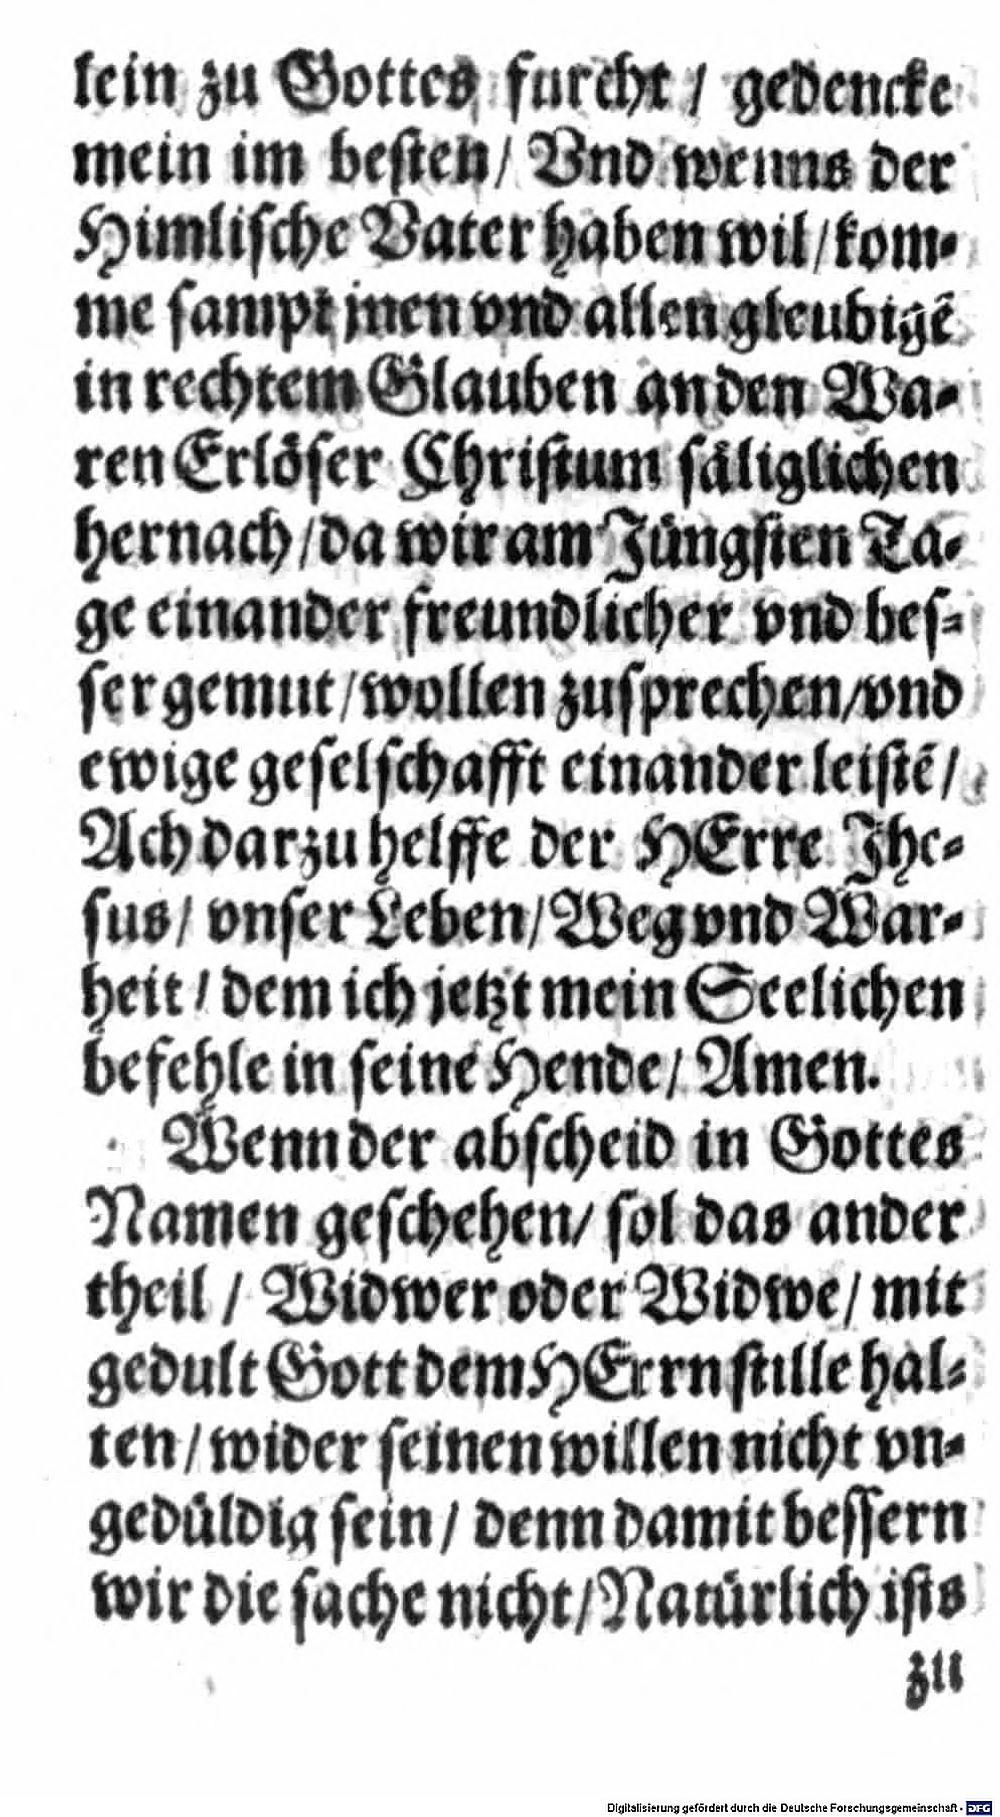 lein zu Gottes furcht / gedencke
mein im besten / Vnd wenns der
Himlische Vater haben wil / kom⸗
me sampt jnen vnd allen gleubigẽ
in rechtem Glauben an den Wa⸗
ren Erlöser Christum säliglichen
hernach / da wir am Jüngsten Ta⸗
ge einander freundlicher vnd bes⸗
ser gemut / wollen zusprechen / vnd
ewige geselschafft einander leistẽ /
Ach darzu helffe der HErre Jhe⸗
sus / vnser Leben / Weg vnd War⸗
heit / dem ich jetzt mein Seelichen
befehle in seine Hende / Amen.
Wenn der abscheid in Gottes
Namen geschehen / sol das ander
theil / Widwer oder Widwe / mit
gedult Gott dem HErrn stille hal⸗
ten / wider seinen willen nicht vn⸗
gedüldig sein / denn damit bessern
wir die sache nicht / Natürlich ists
zu
Digitalisierung gefördert durch die Deutsche Forschungsgemeinschaft - DFG